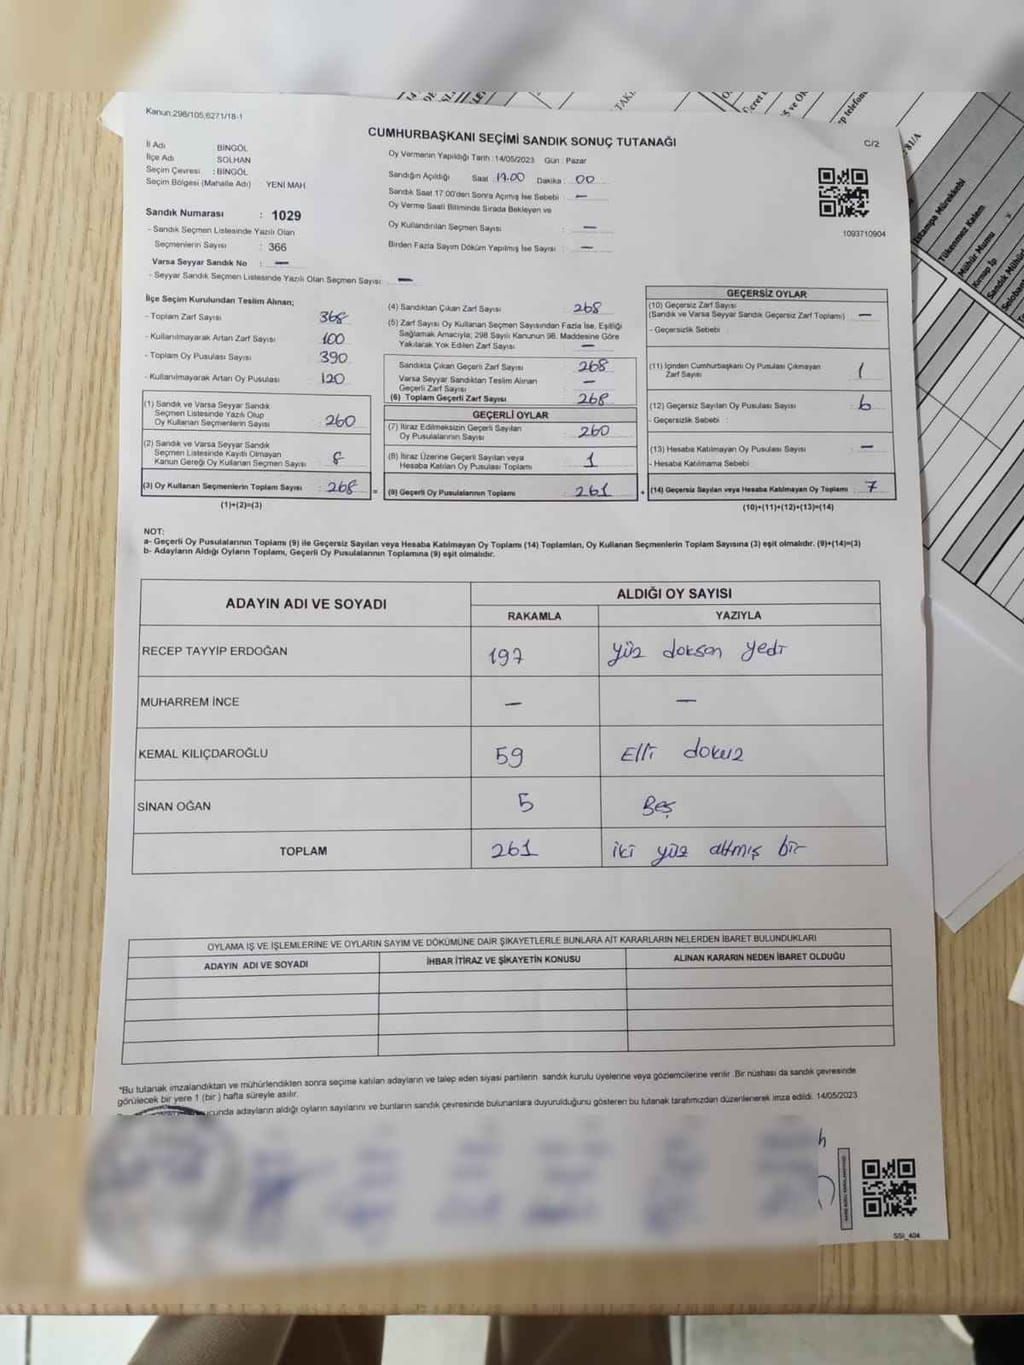 Kanun:298/105,6271/18-1
CUMHURBAŞKANI SEÇİMİ SANDIK SONUÇ TUTANAĞI
C/2
İl Adı : BİNGÖL
İlçe Adı SOLHAN
Seçim Çevresi : BİNGÖL
Seçim Bölgesi (Mahalle Adı) YENİ MAH.
Sandık Numarası : 1029
- Sandık Seçmen Listesinde Yazılı Olan
Seçmenlerin Sayısı : 366
Varsa Seyyar Sandık No : —
- Seyyar Sandık Seçmen Listesinde Yazılı Olan Seçmen Sayısı : —
Oy Vermenin Yapıldığı Tarih :14/05/2023 Gün : Pazar
Sandığın Açıldığı Saat : 17.00 Dakika : 00
Sandık Saat 17:00'den Sonra Açımış İse Sebebi : —
Oy Verme Saati Bitiminde Sırada Bekleyen ve
Oy Kullandırılan Seçmen Sayısı : —
Birden Fazla Sayım Döküm Yapılmış İse Sayısı : —
1093710904
İlçe Seçim Kurulundan Teslim Alınan;
- Toplam Zarf Sayısı : 368
- Kullanılmayarak Artan Zarf Sayısı : 100
- Toplam Oy Pusulası Sayısı : 390
- Kullanılmayarak Artan Oy Pusulası : 120
(1) Sandık ve Varsa Seyyar Sandık
Seçmen Listesinde Yazılı Olup
Oy Kullanan Seçmenlerin Sayısı : 260
(2) Sandık ve Varsa Seyyar Sandık
Seçmen Listesinde Kayıtlı Olmayan
Kanun Gereği Oy Kullanan Seçmen Sayısı : 8
(3) Oy Kullanan Seçmenlerin Toplam Sayısı : 268
(1)+(2)=(3)
(4) Sandıktan Çıkan Zarf Sayısı : 268
(5) Zarf Sayısı Oy Kullanan Seçmen Sayısından Fazla İse, Eşitliği
Sağlamak Amacıyla; 298 Sayılı Kanunun 98. Maddesine Göre
Yakılarak Yok Edilen Zarf Sayısı : —
Sandıkta Çıkan Geçerli Zarf Sayısı : 268
Varsa Seyyar Sandıktan Teslim Alınan
Geçerli Zarf Sayısı : —
(6) Toplam Geçerli Zarf Sayısı : 268
GEÇERLİ OYLAR
(7) İtiraz Edilmeksizin Geçerli Sayılan
Oy Pusulalarının Sayısı : 260
(8) İtiraz Üzerine Geçerli Sayılan veya
Hesaba Katılan Oy Pusulası Toplamı : 1
= (9) Geçerli Oy Pusulalarının Toplamı : 261
GEÇERSİZ OYLAR
(10) Geçersiz Zarf Sayısı
(Sandık ve Varsa Seyyar Sandık Geçersiz Zarf Toplamı) : —
- Geçersizlik Sebebi :
(11) İçinden Cumhurbaşkanı Oy Pusulası Çıkmayan
Zarf Sayısı : 1
(12) Geçersiz Sayılan Oy Pusulası Sayısı : 6
- Geçersizlik Sebebi :
(13) Hesaba Katılmayan Oy Pusulası Sayısı : —
- Hesaba Katılmama Sebebi :
+ (14) Geçersiz Sayılan veya Hesaba Katılmayan Oy Toplamı : 7
(10)+(11)+(12)+(13)=(14)
NOT:
a- Geçerli Oy Pusulalarının Toplamı (9) ile Geçersiz Sayılan veya Hesaba Katılmayan Oy Toplamı (14) Toplamları, Oy Kullanan Seçmenlerin Toplam Sayısına (3) eşit olmalıdır. (9)+(14)=(3)
b- Adayların Aldığı Oyların Toplamı, Geçerli Oy Pusulalarının Toplamına (9) eşit olmalıdır.
ADAYIN ADI VE SOYADI
ALDIĞI OY SAYISI
RAKAMLA YAZIYLA
RECEP TAYYİP ERDOĞAN 197 yüz doksan yedi
MUHARREM İNCE — —
KEMAL KILIÇDAROĞLU 59 Elli dokuz
SİNAN OĞAN 5 Beş
TOPLAM 261 iki yüz altmış bir
OYLAMA İŞ VE İŞLEMLERİNE VE OYLARIN SAYIM VE DÖKÜMÜNE DAİR ŞİKAYETLERLE BUNLARA AİT KARARLARIN NELERDEN İBARET BULUNDUKLARI
ADAYIN ADI VE SOYADI İHBAR İTİRAZ VE ŞİKAYETİN KONUSU ALINAN KARARIN NEDEN İBARET OLDUĞU
*Bu tutanak imzalandıktan ve mühürlendikten sonra seçime katılan adayların ve talep eden siyasi partilerin sandık kurulu üyelerine veya gözlemcilerine verilir .Bir nüshası da sandık çevresinde
görülecek bir yere 1 (bir ) hafta süreyle asılır.
adayların aldığı oyların sayılarını ve bunların sandık çevresinde bulunanlara duyurulduğunu gösteren bu tutanak tarafımızdan düzenlenerek imza edildi. 14/05/2023
SSI_404
Istampa Mürekkebi
Tükenmez Kalem
Mühür Mumu
Kınnap İp